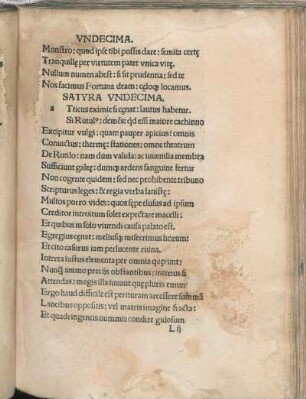 VNDECIMA.
Monstro: quod ipse tibi possis dare: semita certę
Tranquillę per virtutem patet vnica vitę.
Nullum numen abest: si sit prudentia: sed te
Nos facimus Fortuna deam: cęloq; locamus.
SATYRA VNDECIMA.
a Tticus eximie si cęnat: lautus habetur.
Si Rutilꝰ: demẽs: qd eñ maiore cachinno
Excipitur vulgi: quam pauper apicius: omnis
Conuictus: thermę: stationes: omne theatrum
De Rutilo: nam dum valida: ac iuuenilia membra
Sufficiunt galeę: dumq; ardens sanguine fertur
Non cogente quidem: sed nec prohibente tribuno
Scripturus leges: & regia verba lanistę:
Multos porro vides: quos sępe elusus ad ipsum
Creditor introitum solet expectare macelli:
Et quibus in solo viuendi causa palato est.
Egregius cęnat: meliusq; miserrimus horum:
Et cito casurus iam perlucente ruina.
Interea gustus elementa per omnia quęrunt:
Nunq̃ animo precijs obstantibus: interius si
Attendas: magis illa iuuant quę pluris emunt
Ergo haud difficile est perituram arcessere summã
Lancibus oppositis: vel matris imagine fracta:
Et quadringenis nummis condire gulosum
L ij